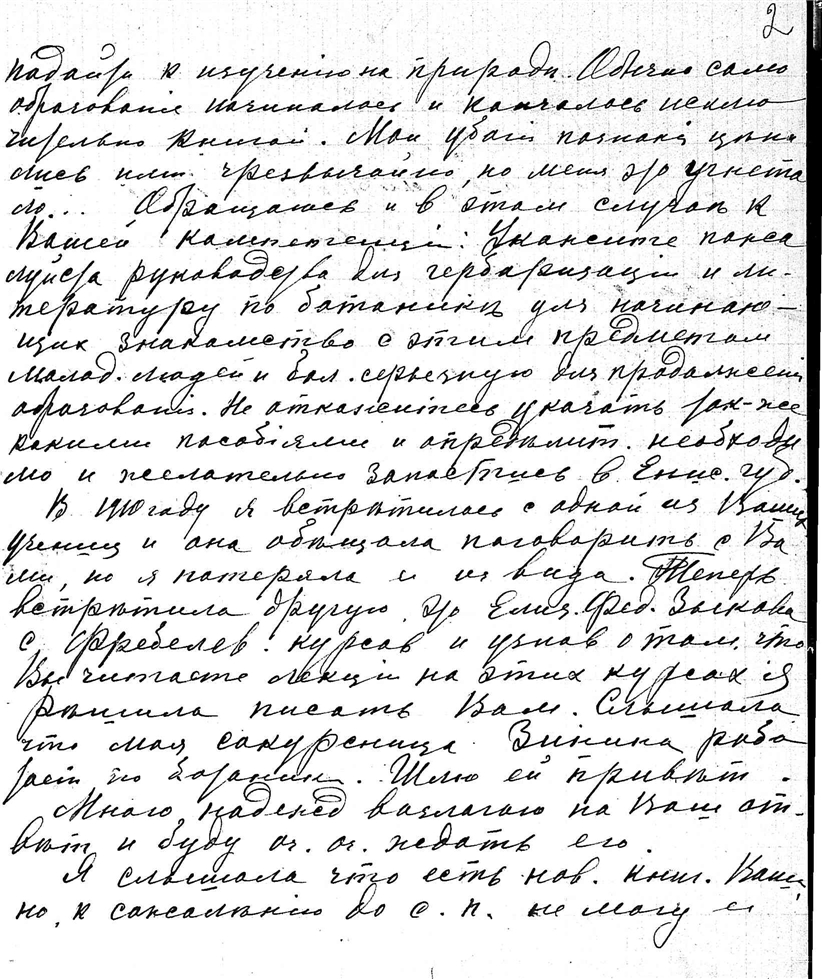 2
к изученію на природѣ. Обычно само
образованіе начиналось и кончалось исклю
чительно книгой. Мои убогія познанія цѣни
лись ими чрезвычайно, но меня это угнета
ло... Обращаюсь и в этом случаѣ к
Вашей компетенціи: Укажите пожа
луйста руководства для гербаризаціи и ли-
тературу по ботаникѣ для начинаю-
щих знакомство с этим предметом
молод. людей и бол. серьезную для продолженія
образованія. Не откажитесь указать так-же
какими пособіями и опредѣлит. необходи
мо и желательно запастись в Енис. губ.
В 1910 году я встрѣтилась с одной из Ваших
учениц и она обѣщала поговорить с Ва
ми, но я потеряла ее из вида. Теперь
встрѣтила другую, это Елиз. Фед. Зыкова
с Фребелев. курсов и узнав о том, что
Вы читаете лекціи на этих курсах я
рѣшила писать Вам. Слышала
что моя сокурсница Зинина рабо
тает по ботаник. Шлю ей привѣт.
Много надежд возлагаю на Ваш от-
вѣт и буду оч. оч. ждать его.
Я слышала что есть нов. книг. Ваши,
но, к сожалѣнію до с. п. не могу ее